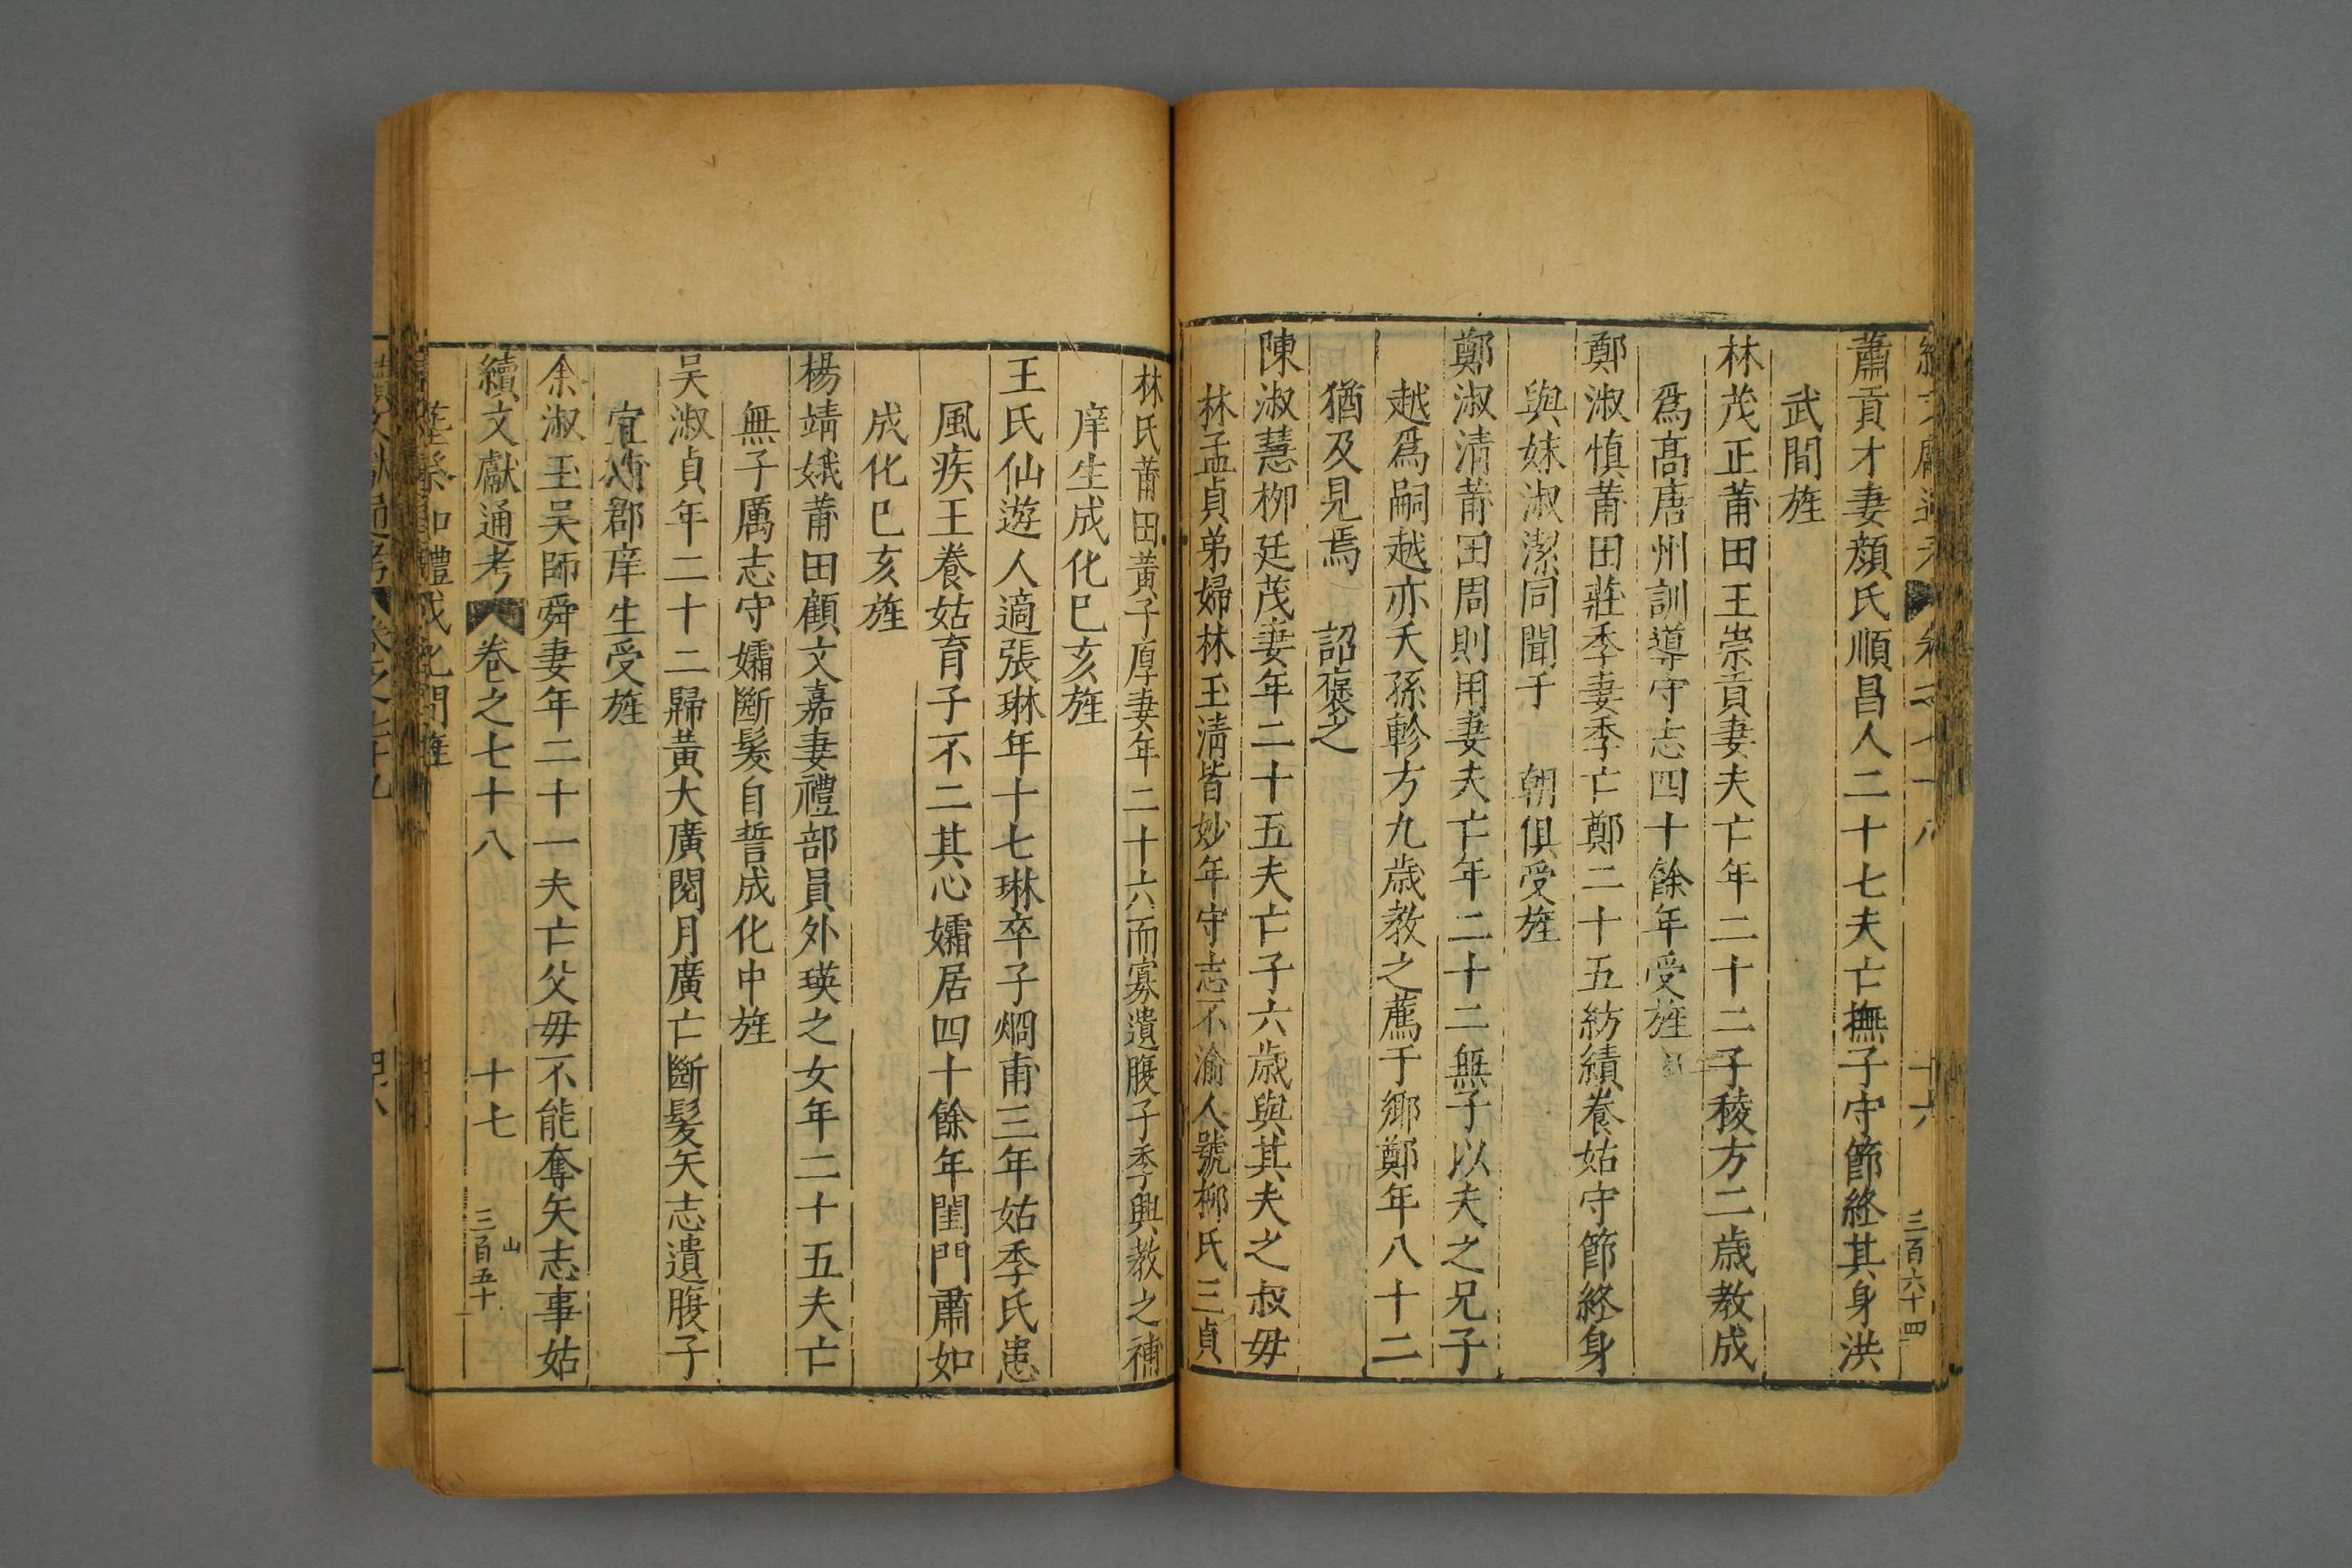 蕭貢才妻顏氏順昌人二十七夫亡撫子守節終其身洪
武間旌
林茂正莆田王崇貢妻夫亡年二十二子稜方二歲教成
爲高唐州訓導守志四十餘年受旌
鄭淑慎莆田莊季妻季亡鄭二十五紡績養姑守節終身
與妹淑潔同聞于 朝俱受旌
鄭淑清莆田周則用妻夫亡年二十二無子以夫之兄子
越爲嗣越亦夭孫軫方九歲教之薦于鄉鄭年八十二
猶及見焉 詔褒之
陳淑慧柳廷茂妻年二十五夫亡子六歲與其夫之叔毋
林孟貞弟婦林玉清皆妙年守志不渝人號柳氏三貞
林氏莆田黃子厚妻年二十六而寡遺腹子季興教之補
庠生成化巳亥旌
王氏仙遊人適張琳年十七琳卒子烱甫三年姑季氏患
風疾王養姑育子不二其心孀居四十餘年閨門肅如
成化巳亥旌
楊靖娥莆田顧文嘉妻禮部員外瑛之女年二十五夫亡
無子厲志守孀斷髮自誓成化中旌
吳淑貞年二十二歸黃大廣閱月廣亡斷髮矢志遺腹子
郡庠生受旌
余淑玉吳師舜妻年二十一夫亡父毋不能奪矢志事姑
續文獻通考 卷之七十八 十七 山 三百五十